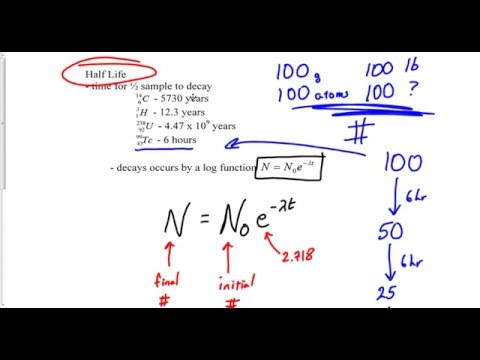 Half Life
- time for ½ sample to decay
¹⁴₆C - 5730 years
³₁H - 12.3 years
²³⁸₉₂U - 4.47 x 10⁹ years
⁹⁹₄₃Tc - 6 hours
- decays occurs by a log function N = N₀e^(-λt)
100 g 100 lb
100 atoms 100 ?
#
100
6hr
50
6hr
25
N = N₀ e^(-λt)
2.718
final initial
# #